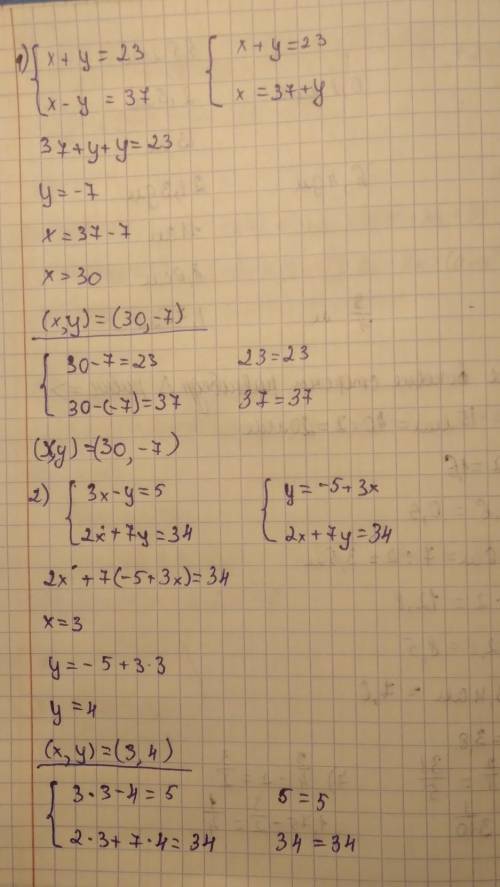 1) { x + y = 23 { x + y = 23
x - y = 37 x = 37 + y
37 + y + y = 23
y = -7
x = 37 - 7
x = 30
(x, y) = (30, -7)
{ 30 - 7 = 23 23 = 23
30 - (-7) = 37 37 = 37
(x, y) = (30, -7)
2) { 3x - y = 5 { y = -5 + 3x
2x + 7y = 34 2x + 7y = 34
2x + 7(-5 + 3x) = 34
x = 3
y = -5 + 3·3
y = 4
(x, y) = (3, 4)
{ 3·3 - 4 = 5 5 = 5
2·3 + 7·4 = 34 34 = 34